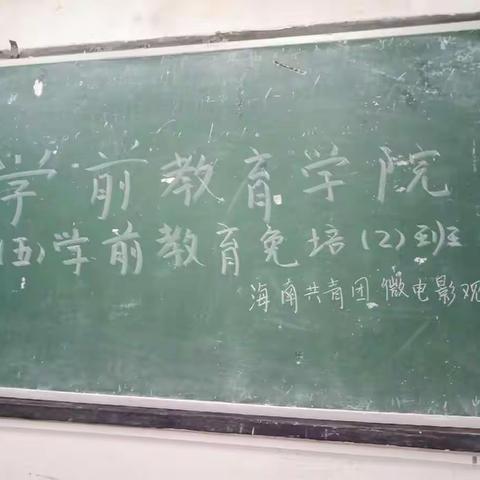 学前教育学院
(五)学前教育免培(2)班
海南共青团微电影观